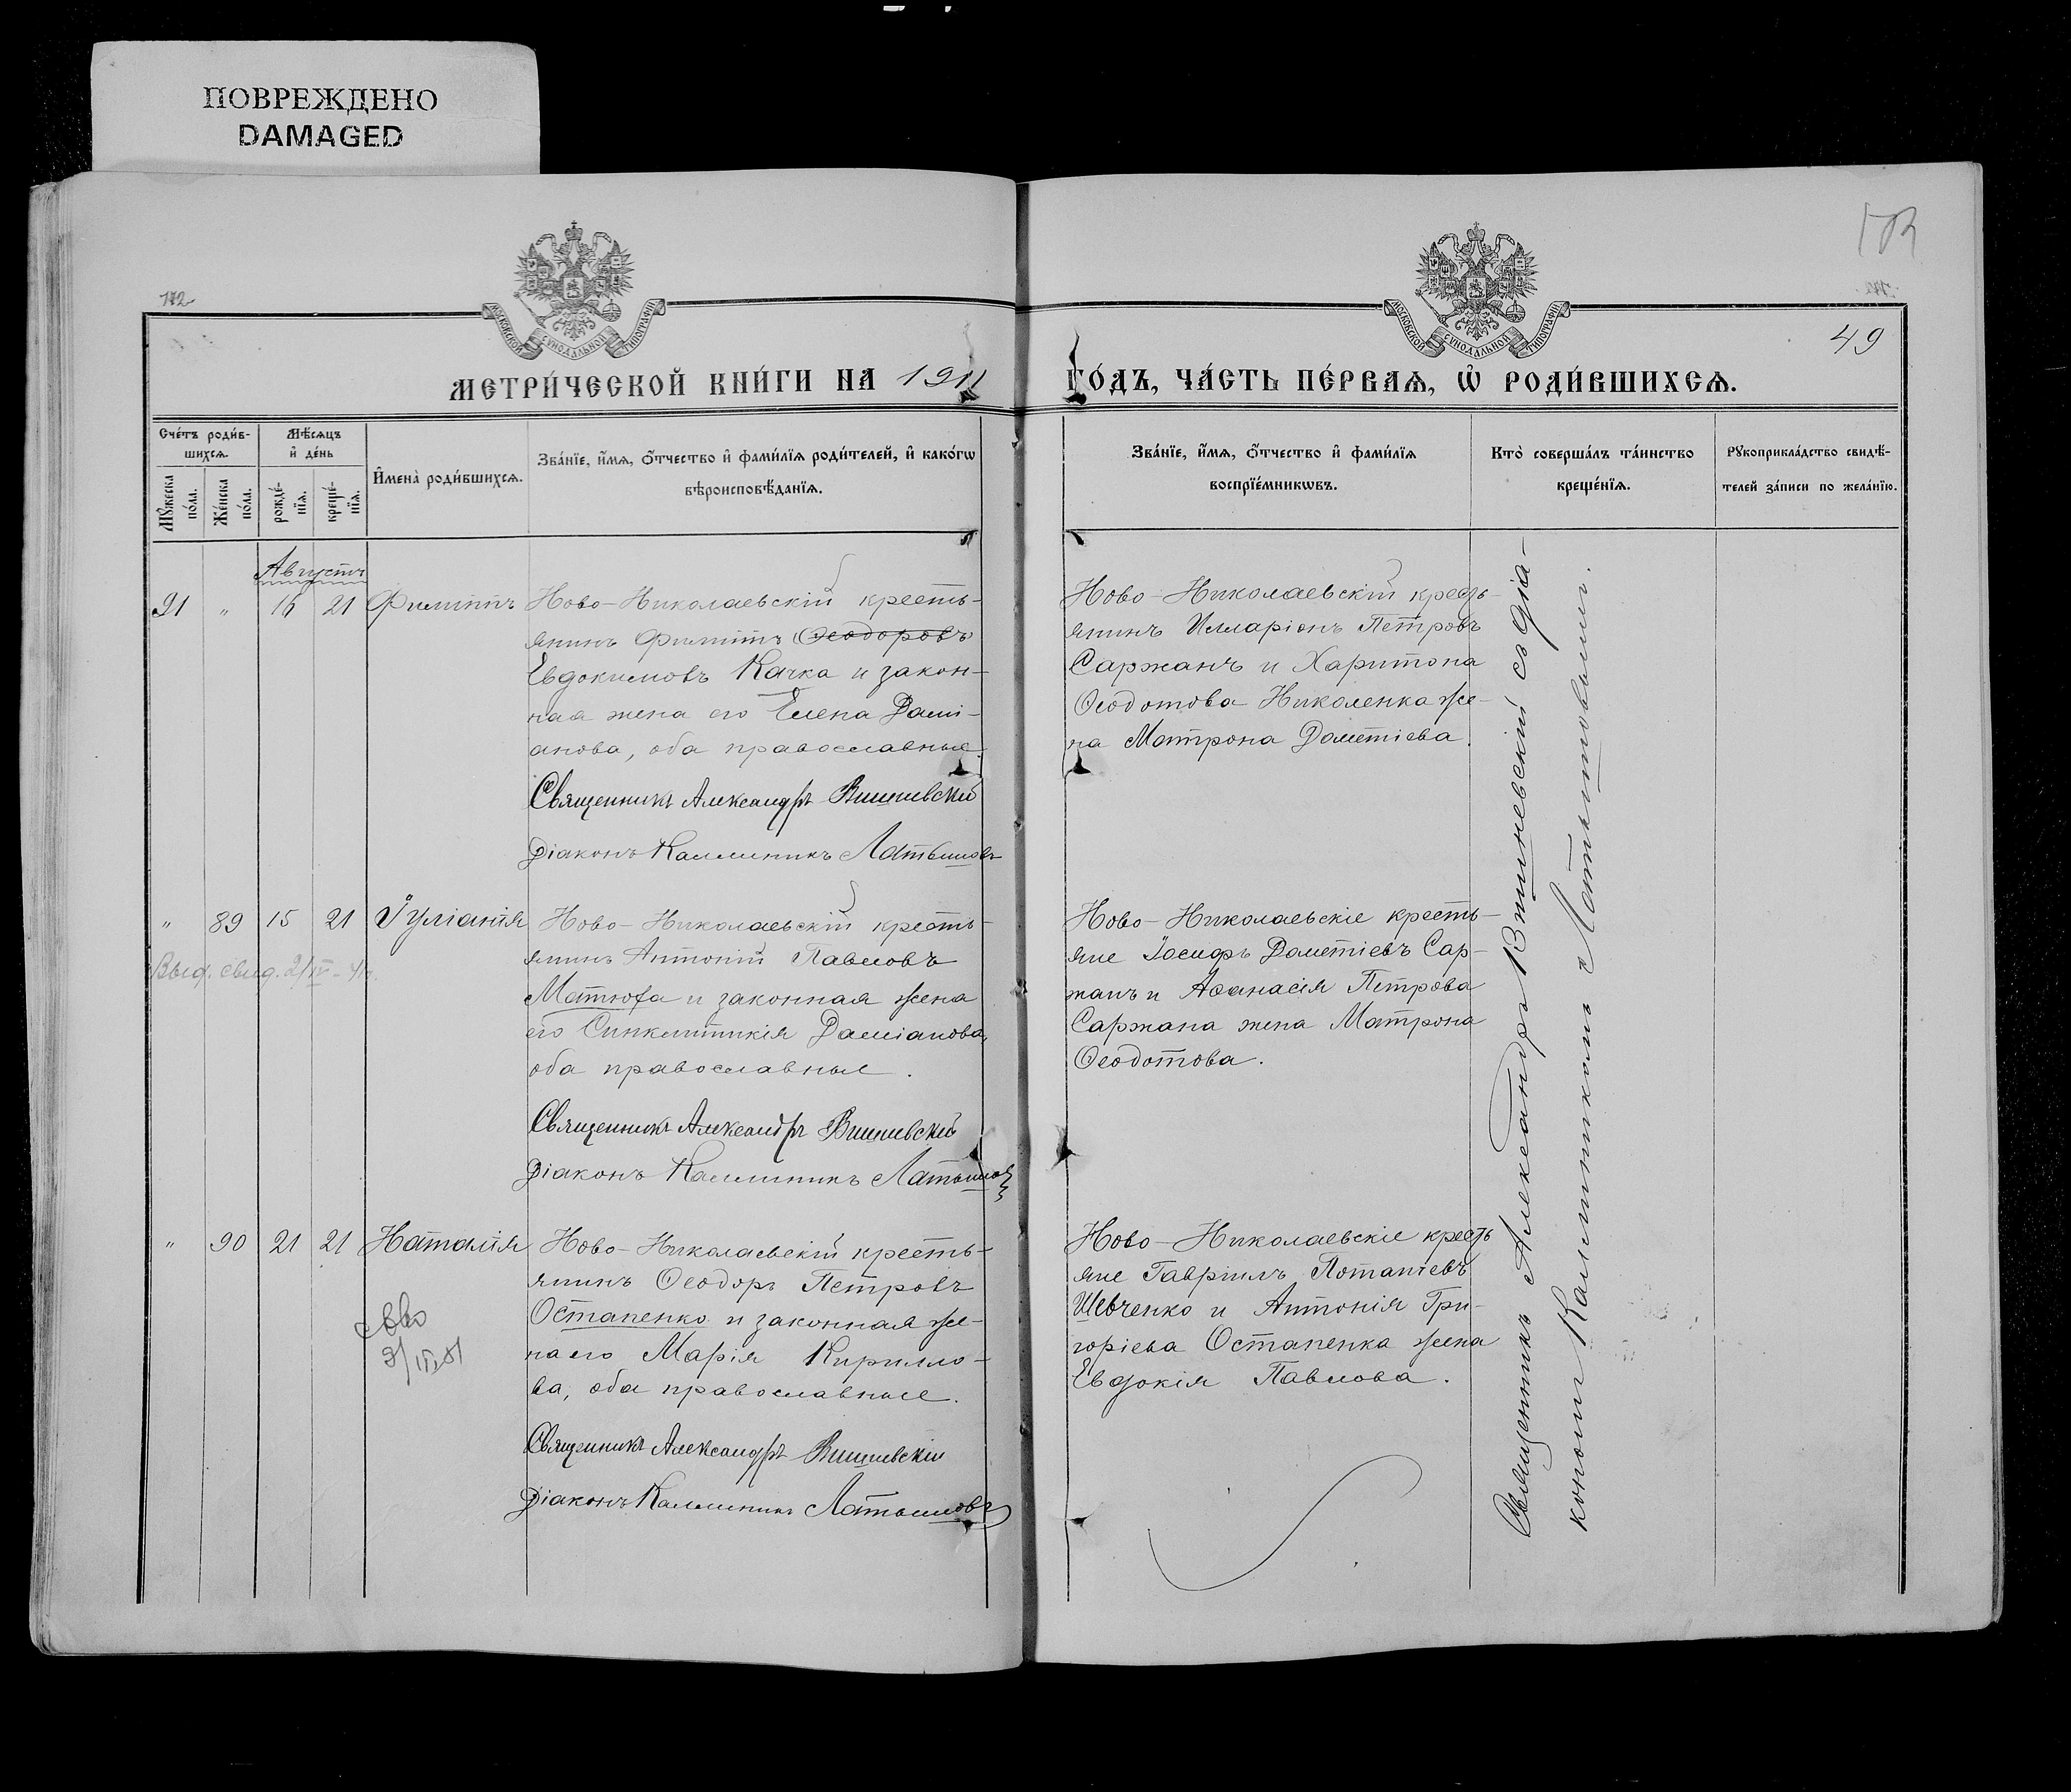 ПОВРЕЖДЕНО
DAMAGED
172
МОСКОВСКОЙ СУНОДАЛЬНОЙ ТИПОГРАФІИ
МОСКОВСКОЙ СУНОДАЛЬНОЙ ТИПОГРАФІИ
49
МЕТРИ́ЧЕСКОЙ КНИ́ГИ НА 1911
ГО́ДЪ, ЧА́СТЬ ПЕ́РВАѦ, Ѡ҆ РОДИ́ВШИХСѦ.
Сче́тъ роди́в-
шихсѧ.
Мѣ́сѧцъ
и҆ де́нь
Мꙋ́жеска
по́ла.
Же́нска
по́ла.
рожде́-
нїѧ.
креще́-
нїѧ.
И҆мена̀ роди́вшихсѧ.
Зва́нїе, и҆́мѧ, ѻ҆́тчество и҆ фами́лїѧ роди́телей, и҆ како́гѡ
вѣроисповѣ́данїѧ.
Зва́нїе, и҆́мѧ, ѻ҆́тчество и҆ фами́лїѧ
воспрїе́мникѡвъ.
Кто̀ соверша́лъ та́инство
креще́нїѧ.
Рꙋкоприкла́дство свидѣ́-
телей за́писи по жела́нїю.
Августъ
91 " 16 21 Филиппъ
Ново-Николаевскій кресть-
янинъ Филиппъ Ѳеодоровъ
Евдокимовъ Качка и закон-
ная жена его Елена Дамі-
анова, оба православные.
Священникъ Александръ Вишневскій
Діаконъ Каллиникъ Латышовъ
Ново-Николаевскій кресть-
янинъ Илларіонъ Петровъ
Саржанъ и Харитона
Ѳеодотова Николенка же-
на Матрона Дометіева.
" 89 15 21 Іуліанія
Выд. свид.
Ново-Николаевскій кресть-
янинъ Антоній Павловъ
Матюха и законная жена
его Синклитикія Даміанова,
оба православные.
Священникъ Александръ Вишневскій
Діаконъ Каллиникъ Латышовъ
Ново-Николаевскіе кресть-
яне Іосифъ Дометіевъ Сар-
жанъ и Аѳанасія Петрова
Саржана жена Матрона
Ѳеодотова.
" 90 21 21 Наталія
Ново-Николаевскій кресть-
янинъ Ѳеодоръ Петровъ
Остапенко и законная же-
на его Марія Кирилло-
ва, оба православные.
Священникъ Александръ Вишневскій
Діаконъ Каллиникъ Латышовъ
Ново-Николаевскіе кресть
яне Гавріилъ Потапіевъ
Шевченко и Антонія Гри-
горіева Остапенка жена
Евдокія Павлова.
Священникъ Александръ Вишневскій съ діа-
кономъ Каллиникомъ Латышовымъ.